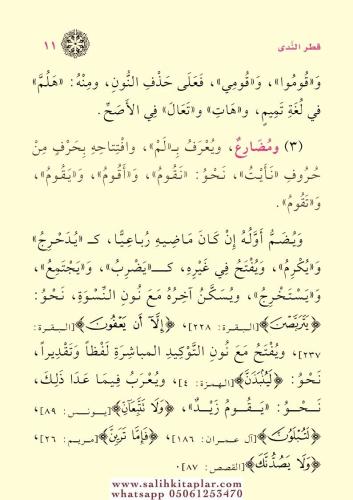 قطر النَّدى
١١
وَ«قُومُوا»، وَ«قُومِي»، فَعَلَى حَذْفِ النُّونِ، ومِنْهُ: «هَلُمَّ»
في لُغَةِ تَمِيمٍ، و«هَاتِ» و«تَعَالَ» فِي الأَصَحِّ.
(٣) ومُضَارِعٌ، ويُعْرَفُ بِـ«لَمْ»، وافْتِتَاحِهِ بِحَرْفٍ مِنْ
حُرُوفِ «نَأَيْتُ»، نَحْوُ: «نَقُومُ»، وَ«أَقُومُ»، وَ«يَقُومُ»،
وَ«تَقُومُ».
وَيُضَمُّ أَوَّلُهُ إِنْ كَانَ مَاضِيهِ رُباعِيًّا، كـ «يُدَحْرِجُ»
وَ«يُكْرِمُ»، وَيُفْتَحُ فِي غَيْرِهِ، كـ«يَضْرِبُ»، وَ«يَجْتَمِعُ»،
وَ«يَسْتَخْرِجُ»، ويُسَكَّنُ آخِرُهُ مَعَ نُونِ النِّسْوَةِ، نَحْوُ:
﴿يَتَرَبَّصْنَ﴾[البقرة: ٢٢٨]، ﴿إِلَّآ أَن يَعْفُونَ﴾[البقرة:
٢٣٧]، ويُفْتَحُ مَعَ نُونِ التَّوْكِيدِ المباشِرَةِ لَفْظاً وَتَقْدِيراً،
نَحْوُ: ﴿لَيُنۢبَذَنَّ﴾[الهمزة: ٤]، ويُعْرَبُ فِيمَا عَدَا ذَلِكَ،
نَـحْـوُ: «يَـقُـومُ زَيْـدٌ»، ﴿وَلَا تَتَّبِعَآنِّ﴾[يـونـس: ٨٩]،
﴿لَتُبْلَوُنَّ﴾[آل عمران: ١٨٦]، ﴿فَإِمَّا تَرَيِنَّ﴾[مريم: ٢٦]،
﴿وَلَا يَصُدُّنَّكَ﴾[القصص: ٨٧].
www.salihkitaplar.com
whatsapp 05061253470